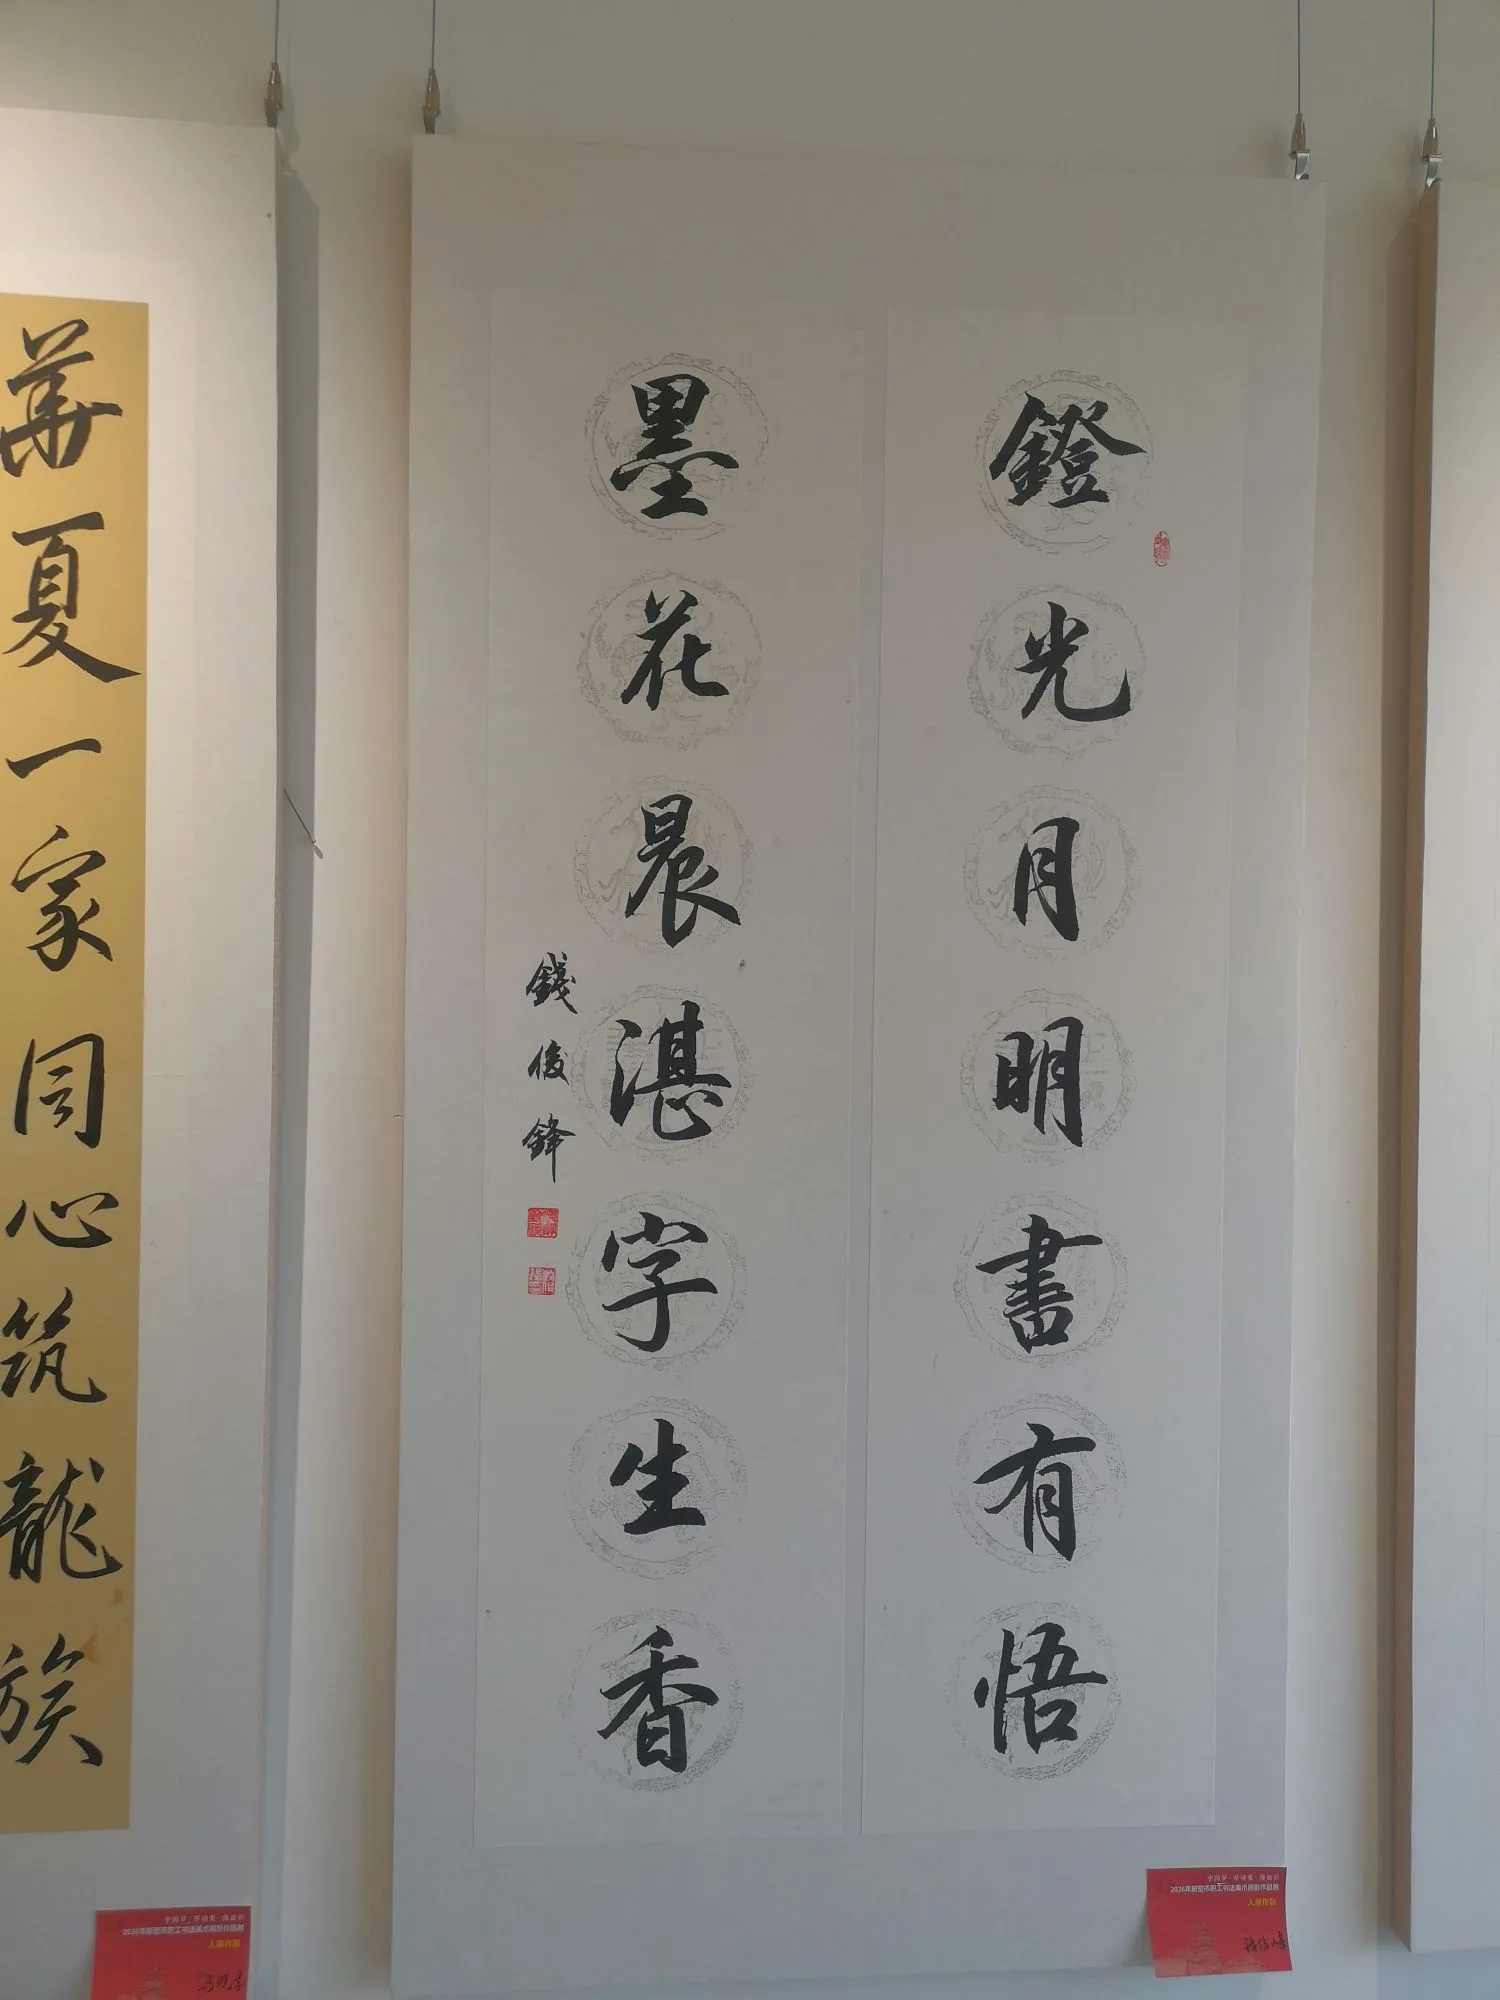 鐙光月明書有悟
墨花晨湛字生香
錢俊鋒
華夏一家同心筑龍族
中国梦·劳动美·
2026年新密市职工书法美术摄影作品展
入展作品
钱俊峰
中国梦·劳动美·
2026年新密市职工书法美术摄影作品展
入展作品